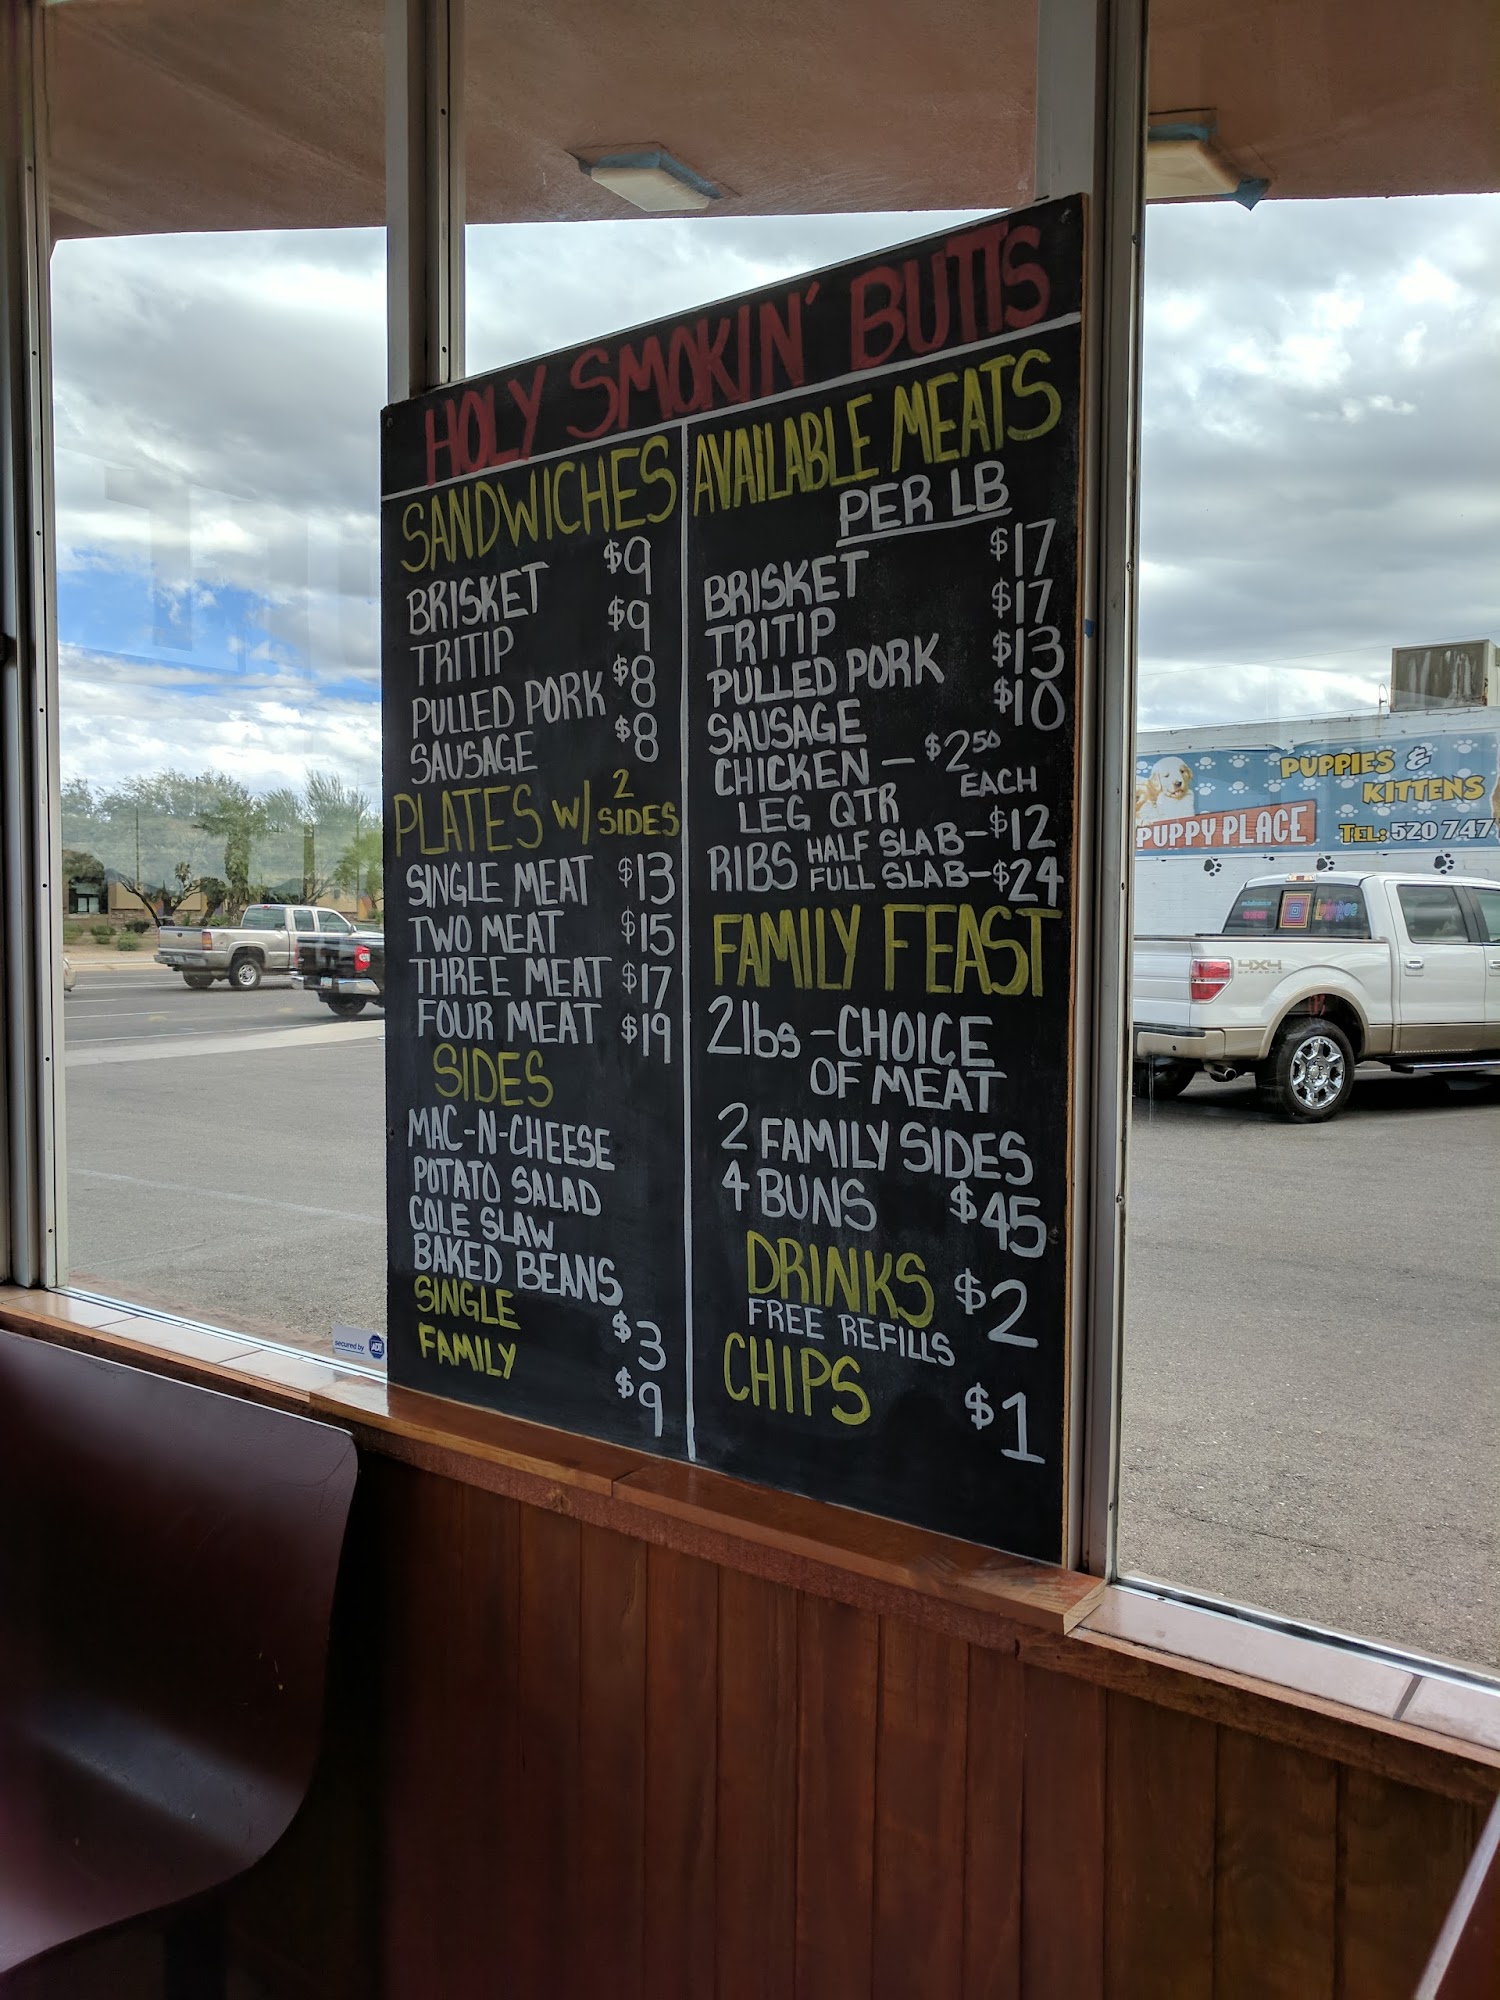 HOLY SMOKIN' BUTTS
SANDWICHES
BRISKET $9
TRITIP $9
PULLED PORK $8
SAUSAGE $8
PLATES W/ 2 SIDES
SINGLE MEAT $13
TWO MEAT $15
THREE MEAT $17
FOUR MEAT $19
SIDES
MAC-N-CHEESE
POTATO SALAD
COLE SLAW
BAKED BEANS
SINGLE $3
FAMILY $9
AVAILABLE MEATS
PER LB
BRISKET $17
TRITIP $17
PULLED PORK $13
SAUSAGE $10
CHICKEN - $2.50 EACH
LEG QTR
RIBS HALF SLAB - $12
FULL SLAB - $24
FAMILY FEAST
2 lbs - CHOICE
OF MEAT
2 FAMILY SIDES
4 BUNS $45
DRINKS $2
FREE REFILLS
CHIPS $1
PUPPIES &
KITTENS
PUPPY PLACE
TEL: 520 747
4X4
secured by
ADT